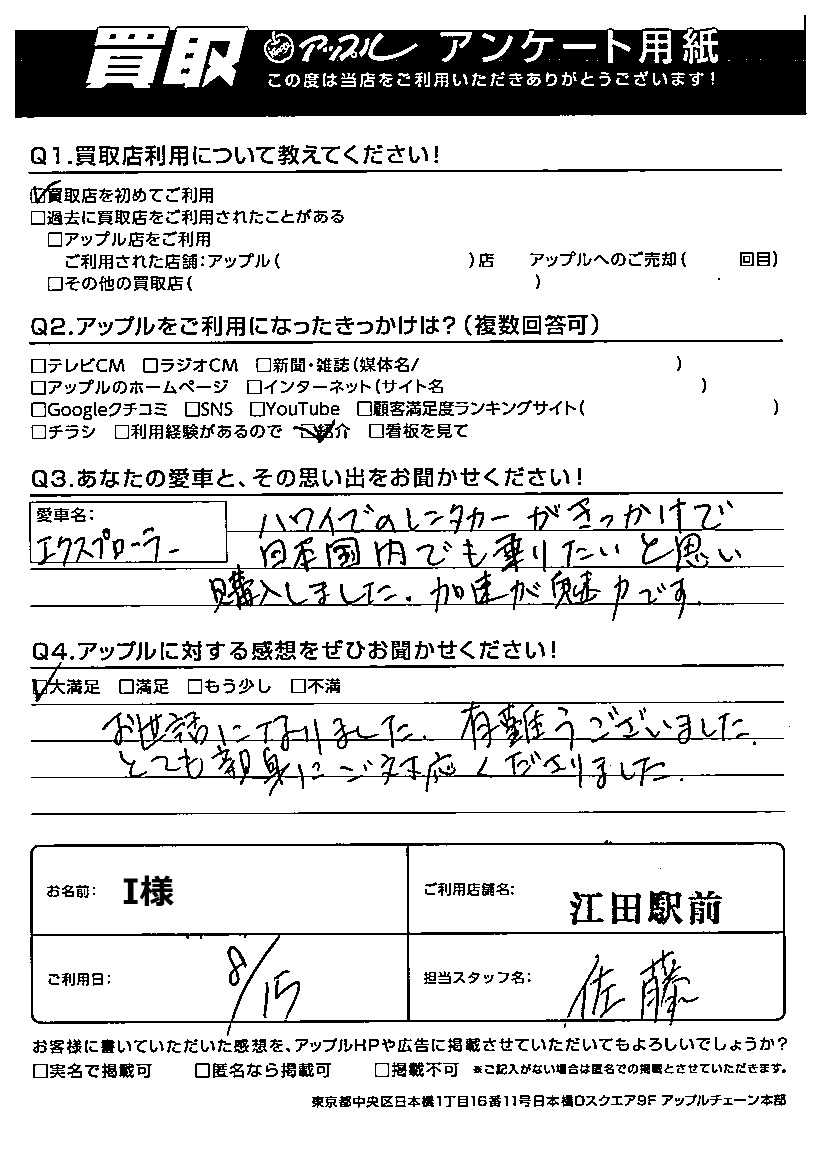 買取 アップル アンケート用紙
この度は当店をご利用いただきありがとうございます！
Q1.買取店利用について教えてください！
☑買取店を初めてご利用
□過去に買取店をご利用されたことがある
□アップル店をご利用
ご利用された店舗：アップル（　）店　アップルへのご売却（　回目）
□その他の買取店（　）
Q2.アップルをご利用になったきっかけは？（複数回答可）
□テレビCM　□ラジオCM　□新聞・雑誌（媒体名/　）
□アップルのホームページ　□インターネット（サイト名　）
□Googleクチコミ　□SNS　□YouTube　□顧客満足度ランキングサイト（　）
□チラシ　□利用経験があるので　☑紹介　□看板を見て
Q3.あなたの愛車と、その思い出をお聞かせください！
愛車名：
エクスプローラー
ハワイでのレンタカーがきっかけで
日本国内でも乗りたいと思い
購入しました。加速が魅力です。
Q4.アップルに対する感想をぜひお聞かせください！
☑大満足　□満足　□もう少し　□不満
お世話になりました。有難うございました。
とても親身にご対応くださりました。
お名前：　I様
ご利用店舗名：　江田駅前
ご利用日：　8/15
担当スタッフ名：　佐藤
お客様に書いていただいた感想を、アップルHPや広告に掲載させていただいてもよろしいでしょうか？
□実名で掲載可　□匿名なら掲載可　□掲載不可　※ご記入がない場合は匿名での掲載とさせていただきます。
東京都中央区日本橋1丁目16番11号日本橋Dスクエア9F アップルチェーン本部